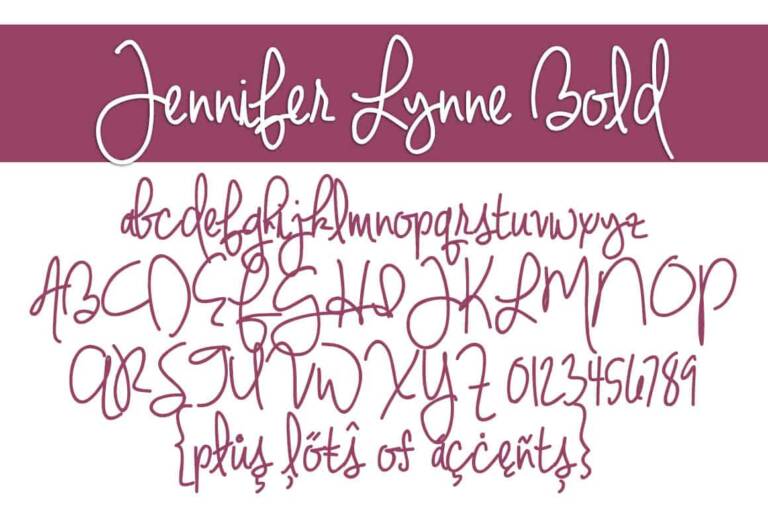 Jennifer Lynne Bold
abcdefghijklmnopqrstuvwxyz
ABCDEFGHIJKLMNOP
QRSTUVWXYZ 0123456789
{płüş ļőŧŝ of áçċęñţș}